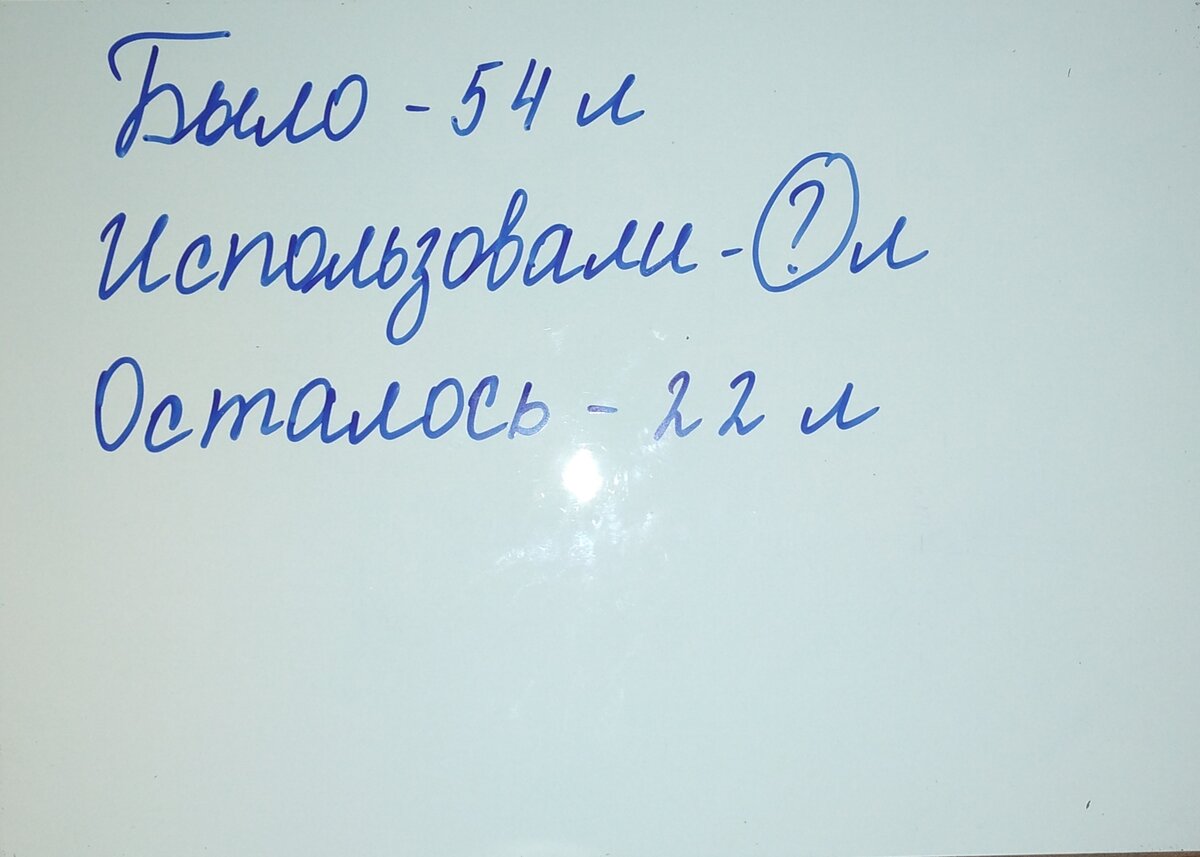 Было - 54 л
Использовали - ? л
Осталось - 22 л